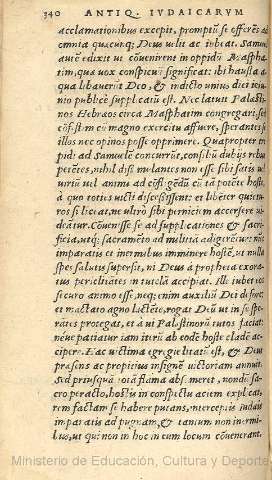 340 ANTIQ. IVDAICARVM
acclamationibus excepit, promptū se efferēs ad
omnia quæcunq; Deus velit ac iubeat. Samuel
autē edixit ut cōuenirent in oppidū Maspha-
tim, quæ vox conspicuū significat: ibi hausta a-
qua libauerūt Deo, & indicto unius diei ieiu-
nio publicè supplicatū est. Nec latuit Palæsti-
nos Hebræos circa Masphatim congregari, sed
cū magno exercitu affuere, sperantes
illos nec opinos posse opprimere. Quapropter
pidi ad Samuelē concurrūt, consiliū dubijs rebus
petētes, nihil dissimulantes non esse sibi satis vel
virium vel animi ad cōfligēdū cū tā potēte hoste,
a quo toties victi discessissent: et libēter quietu-
ros si liceat, ne ultrò sibi perniciem accersere vi-
deātur. Cōuenisse se ad supplicationes & sacri-
ficia, utq; sacramēto ad militiā adigerētur: nūc
imparatis et inermibus imminere hostē, ut nulla
spes salutis supersit, ni Deus à propheta exora-
tus periclitātes in tutelā accipiat. Ille iubet eos
securo animo esse, neq; enim auxiliū Dei defore:
et mactato agno lactēte, rogat Deū ut in suspe-
ratis protegat, et à vi Palæstinorū tutos faciat:
neue patiatur iam iterū ab eodē hoste cladē ac-
cipere. Hac victima egregiè litatū est, & Deus
præsens ac propicius insignē victoriam annuit.
Sed priusquā totā flamma absumeret, nondū sa-
cro peracto, hostis in conspectu aciem explicat,
rem factam se habere putans, intercepis Iudæis
imparatis ad pugnam, & tantum non inermi-
bus, ut qui non in hoc in eum locum cōuenerant.
Ministerio de Educación, Cultura y Deporte